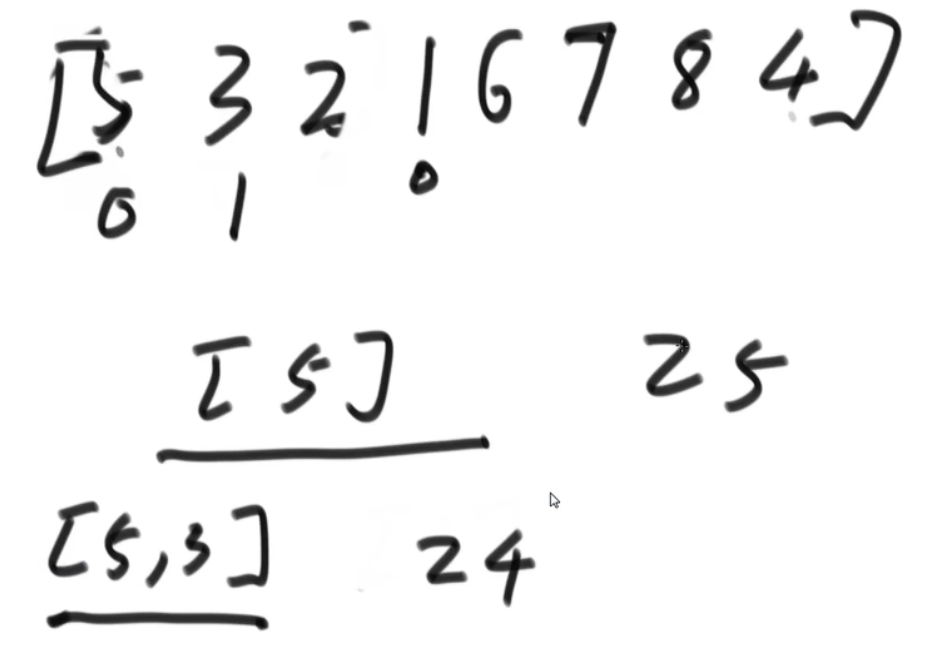 [5 3 2 1 6 7 8 4]
0 1 0
[5] 25
[5,3] 24